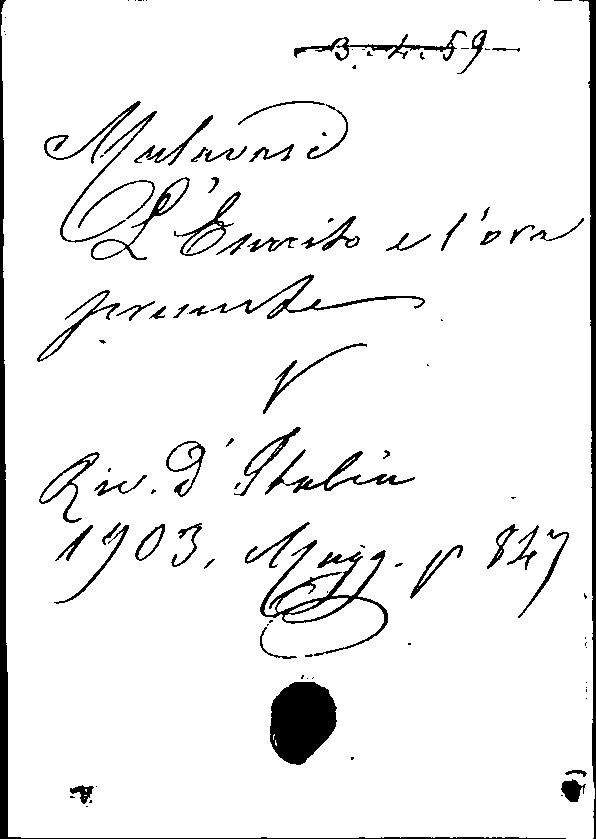 3. 4. 59
Malavasi
L'Esercito e l'ora
presente
V
Riv. d'Italia
1903. Magg. p 847